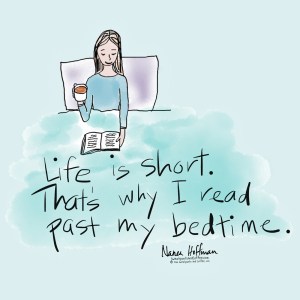 Life is short.
That's why I read
past my bedtime.
Nance Hoffman